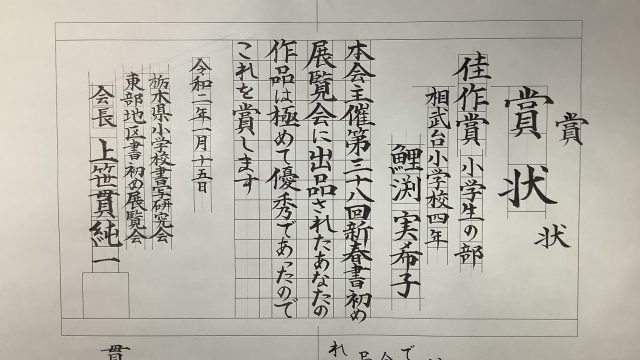 賞
賞状
状
佳作賞 小学生の部
相武台小学校四年
鯉渕実希子
本会主催第三十八回新春書初め
展覧会に出品されたあなたの
作品は極めて優秀であったので
これを賞します
令和二年一月十五日
栃木県小学校書写研究会
東部地区書初め展覧会
会長 上笹貫純一
で
れ
貫